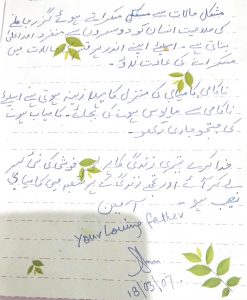 مشکل حالات سے مسکراتے ہوئے گزر جانے
کی صلاحیت انسان کو دوسروں سے منفرد اور اعلیٰ
بناتی ہے۔ اسلیے اپنے اندر ہر قسم کے حالات میں
مسکرانے کی عادت ڈالو۔
ناکامی کامیابی کی منزل کا پہلا زینہ ہوتی ہے اسلیئے
ناکامی سے مایوس ہونے کی بجائے۔ کامیاب ہونے
کی جستجو جاری رکھو۔
خدا کرے تیری زندگی کا ہر خوشی کی نئی لہر
لے کر آئے اور تجھے زندگی کے ہر میں کامیابی
نصیب ہو۔ آمین
Your Loving Father
18/03/07